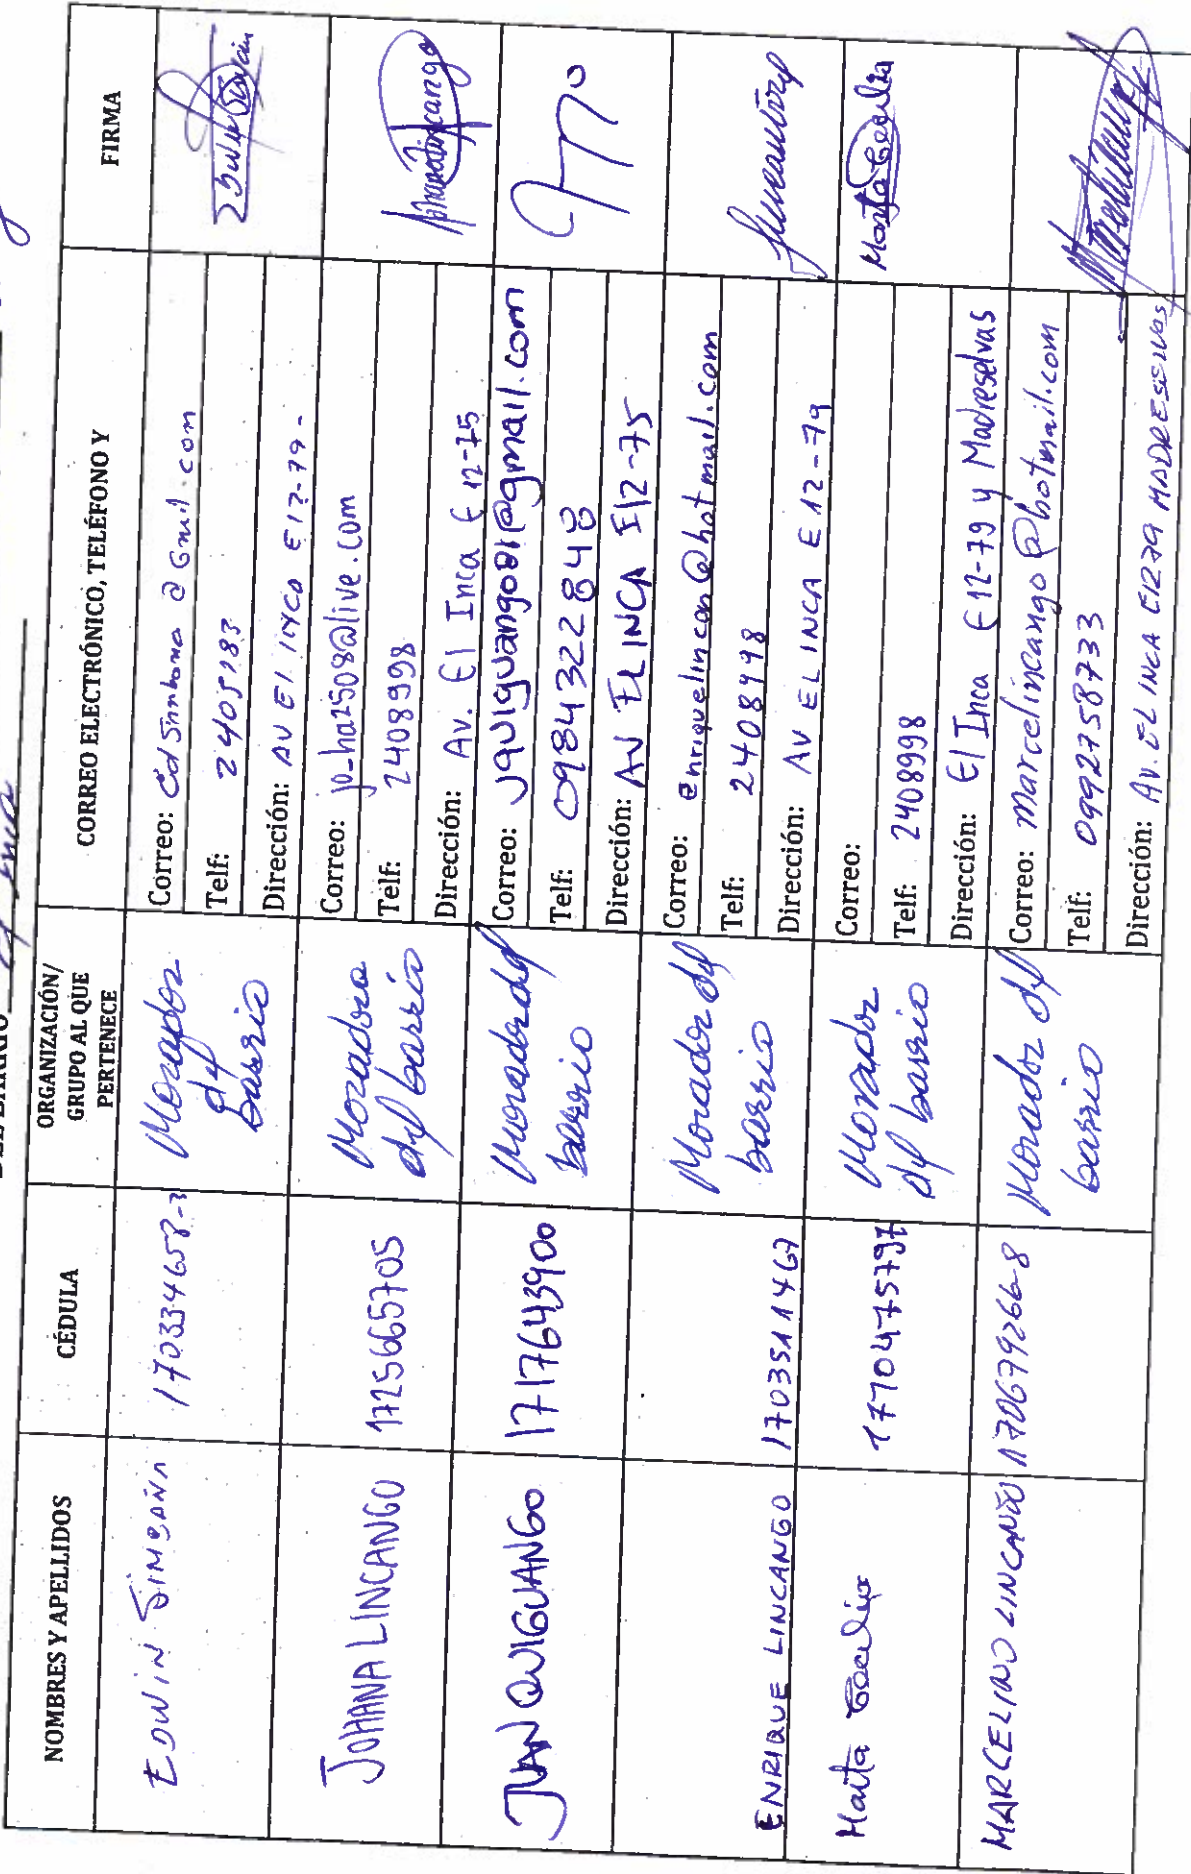 DEL BARRIO El Inca
NOMBRES Y APELLIDOS
CÉDULA
ORGANIZACIÓN/
GRUPO AL QUE
PERTENECE
CORREO ELECTRÓNICO, TELÉFONO Y
FIRMA
EDWIN SIMBAÑA
170334658-3
Morador
del
barrio
Correo:
Telf: 2405183
Dirección: AV El INCA E12-79-
JOHANA LINCANGO
1725665705
Moradora
del barrio
Correo: jo_ha2508@live.com
Telf: 2408998
Dirección: Av. El Inca E 12-75
JUAN QUIGUANGO
1717643900
Morador del
barrio
Correo: jquiguango81@gmail.com
Telf: 0984322848
Dirección: AV EL INCA E12-75
ENRIQUE LINCANGO
1703511467
Morador del
barrio
Correo: enriquelincan@hotmail.com
Telf: 2408998
Dirección: AV EL INCA E 12-79
Marta
1710475797
Morador
del barrio
Correo:
Telf: 2408998
Dirección: El Inca E12-79 y Madreselvas
Marta
MARCELINO LINCANGO
170679266-8
Morador del
barrio
Correo: marcelincango@hotmail.com
Telf: 0992758733
Dirección: AV. EL INCA E1279 MADRESELVAS